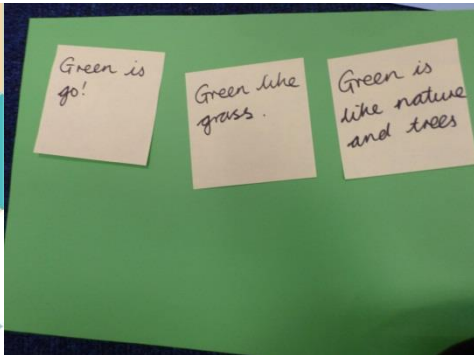 Green is
go!
Green like
grass.
Green is
like nature
and trees